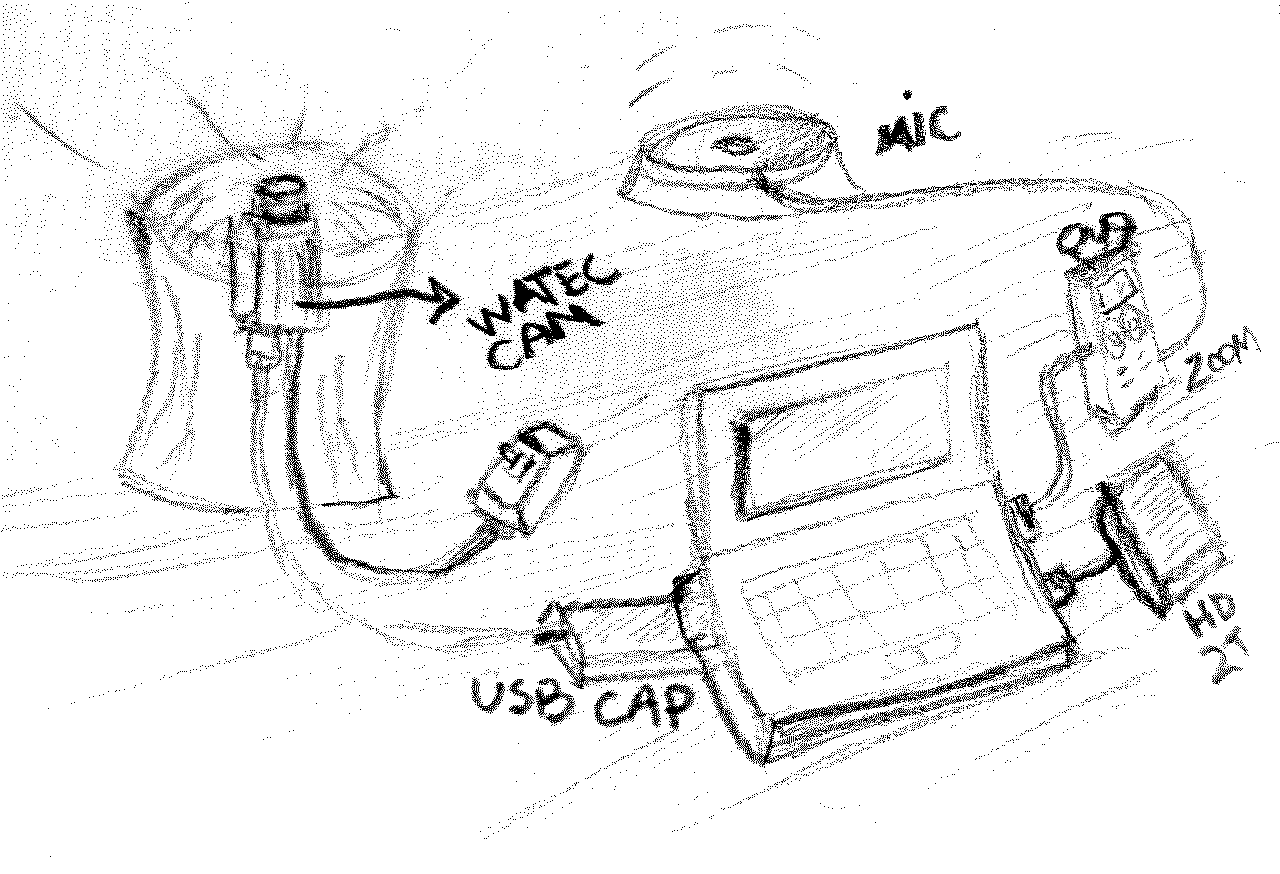 MIC
WATEC
CAM
ZOOM
HD
2T
USB CAP